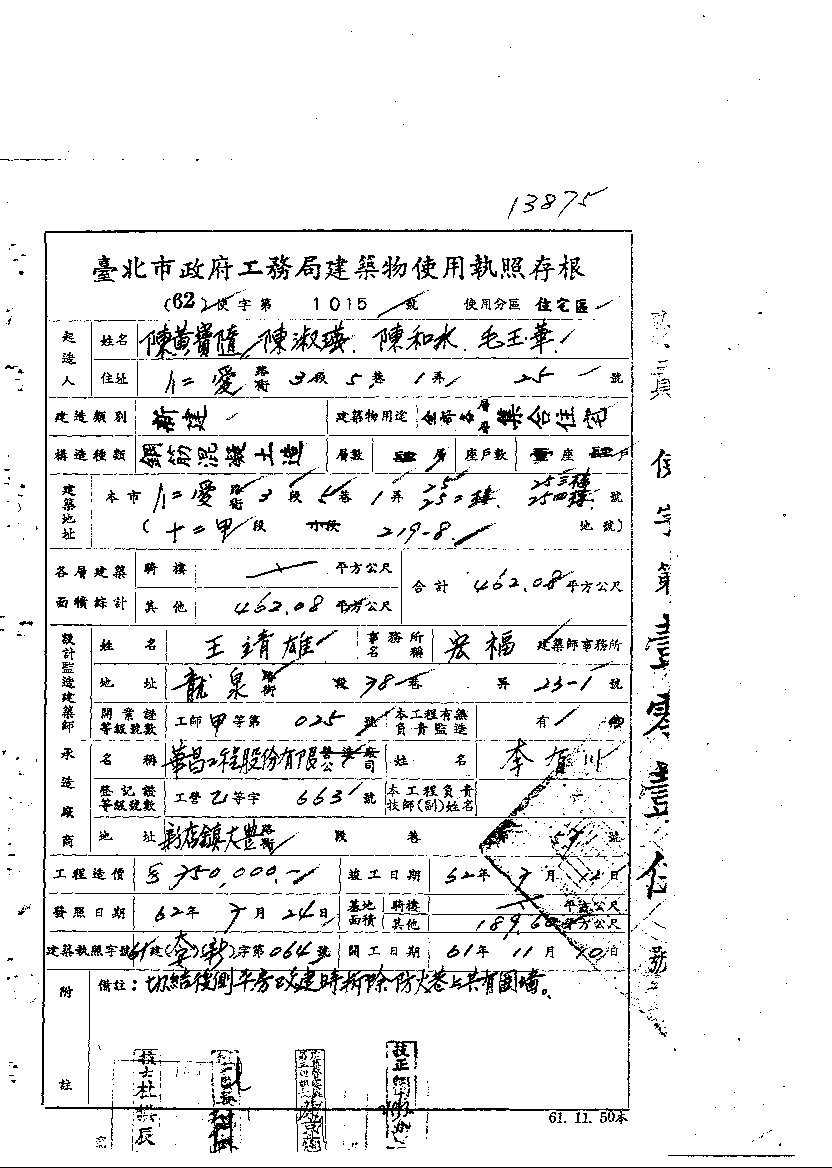 13875
臺北市政府工務局建築物使用執照存根
(62)使字第 1015 號 使用分區 住宅區
起造人 姓名 陳黃寶隨 陳淑瑛 陳和水 毛玉華
住址 仁愛路街 3段 5巷 1弄 25 號
建造類別 新建 建築物用途 全部各層層集合住宅
構造種類 鋼筋混凝土造 層數 肆層 座戶數 壹座 肆戶
建築地址 本市 仁愛路街 3段 5巷 1弄 25 25二樓 25三樓 25四樓 號
(十二甲段 小段 219-8 地號)
各層建築面積綜計 騎樓 平方公尺 合計 462.08 平方公尺
其他 462.08 平方公尺
設計監造建築師 姓名 王靖雄 事務所名稱 宏福 建築師事務所
地址 龍泉路街 段 78巷 弄 23-1 號
開業證等級號數 工師甲等第 025 號 本工程有無負責監造 有 無
承造廠商 名稱 華昌工程股份有限公司 姓名 李百川
登記證等級號數 工營乙等字 663 號 本工程負責技師(副)姓名
地址 新店鎮大豐路街 段 巷 59 號
工程造價 350,000.- 竣工日期 62年 7月 12日
發照日期 62年 7月 24日 基地面積 騎樓 平方公尺
其他 189.60 平方公尺
建築執照字號 61建(大安)(新)字第064號 開工日期 61年 11月 10日
附註 備註:切結後側平房改建時拆除防火巷上共有圍墻。
61. 11. 50本